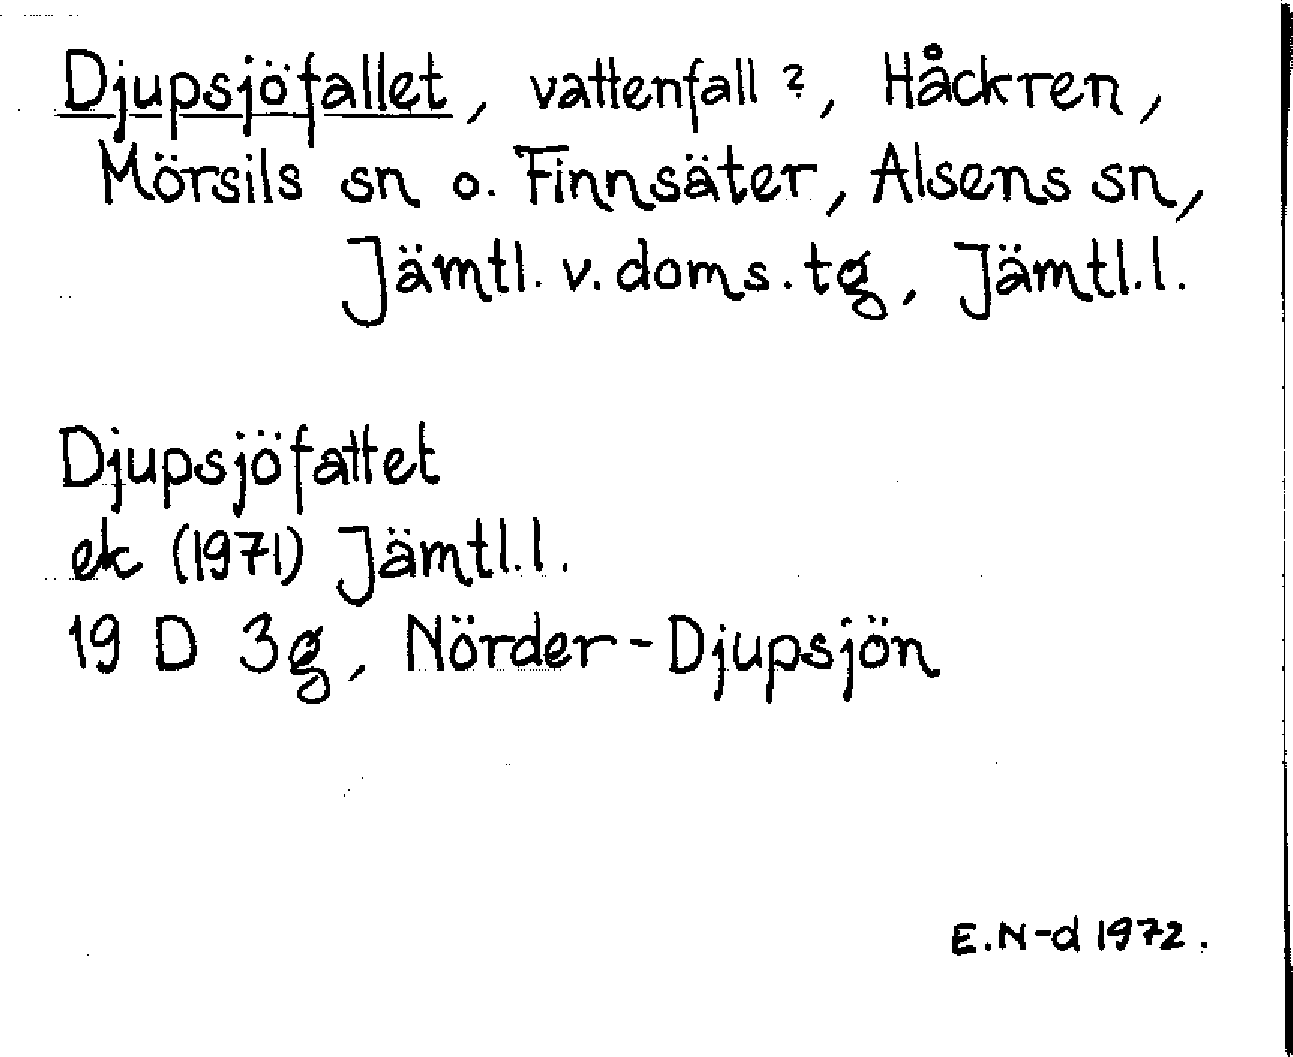 Djupsjöfallet, vattenfall ?, Håckren,
Mörsils sn o. Finnsäter, Alsens sn,
Jämtl. v. doms. tg, Jämtl. l.
Djupsjöfattet
ek (1971) Jämtl. l.
19 D 3g, Nörder-Djupsjön
E. N-d 1972.